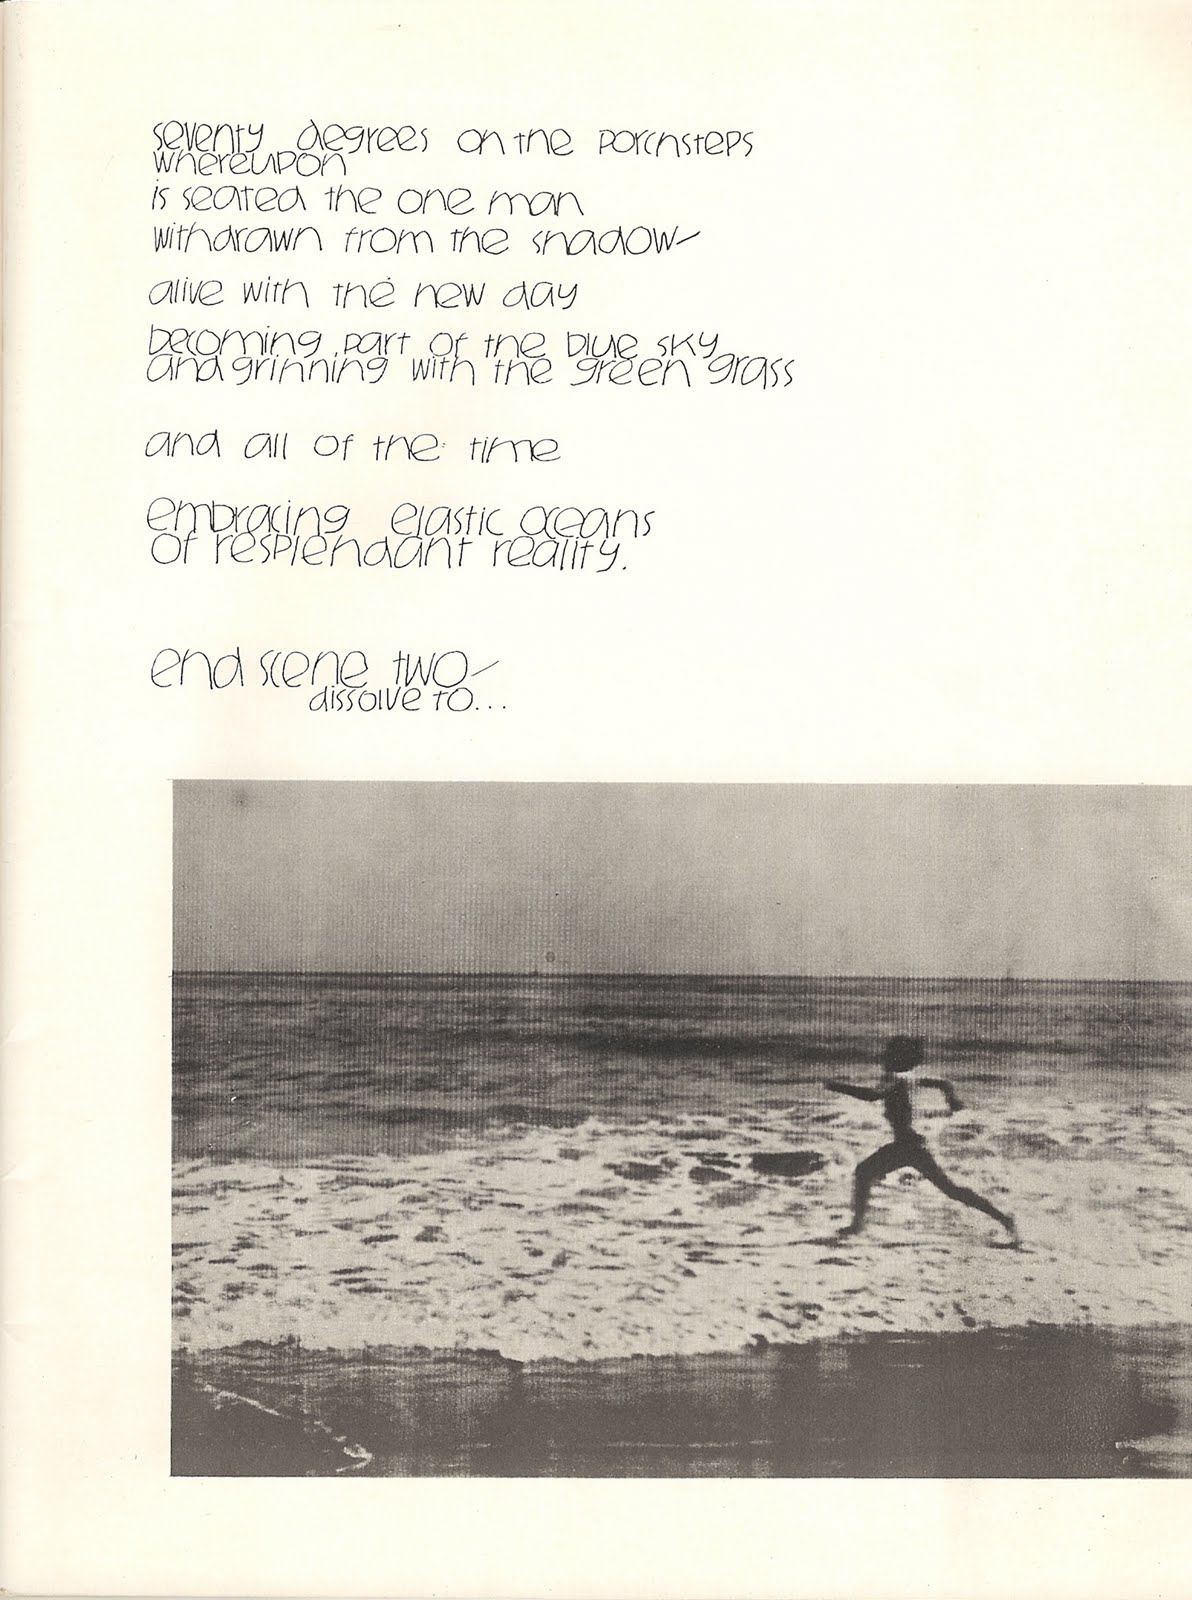 seventy degrees on the porchsteps
whereupon
is seated the one man
withdrawn from the shadow-
alive with the new day
becoming part of the blue sky
and grinning with the green grass
and all of the time
embracing elastic oceans
of resplendant reality.
end scene two-
dissolve to...